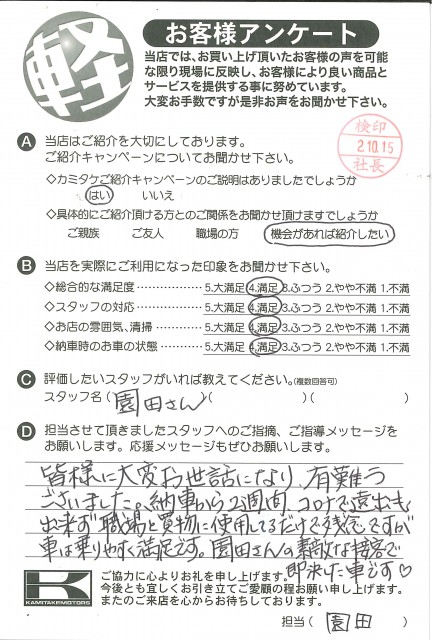 軽
お客様アンケート
当店では、お買い上げ頂いたお客様の声を可能
な限り現場に反映し、お客様により良い商品と
サービスを提供する事に努めています。
大変お手数ですが是非お声をお聞かせ下さい。
検印
2.10.15
社長
A 当店はご紹介を大切にしております。
ご紹介キャンペーンについてお聞かせ下さい。
◇カミタケご紹介キャンペーンのご説明はありましたでしょうか
はい いいえ
◇具体的にご紹介頂ける方とのご関係をお聞かせ頂けますでしょうか
ご親族 ご友人 職場の方 機会があれば紹介したい
B 当店を実際にご利用になった印象をお聞かせ下さい。
◇総合的な満足度 5.大満足 4.満足 3.ふつう 2.やや不満 1.不満
◇スタッフの対応 5.大満足 4.満足 3.ふつう 2.やや不満 1.不満
◇お店の雰囲気、清掃 5.大満足 4.満足 3.ふつう 2.やや不満 1.不満
◇納車時のお車の状態 5.大満足 4.満足 3.ふつう 2.やや不満 1.不満
C 評価したいスタッフがいれば教えてください。(複数回答可)
スタッフ名(園田さん )( )( )
D 担当させて頂きましたスタッフへのご指摘、ご指導メッセージを
お願いします。応援メッセージもぜひお願いします。
皆様に大変お世話になり、有難う
ございました。納車から2週間、コロナで遠出も
出来ず職場と買物に使用してるだけで残念ですが
車は乗りやすく満足です。園田さんの素敵な接客で
即決した車です♡
K
KAMITAKEMOTORS
ご協力に心よりお礼を申し上げます。
今後とも宜しくお引き立てご愛顧の程お願い申し上げます。
またのご来店を心からお待ちしております。
担当( 園田 )